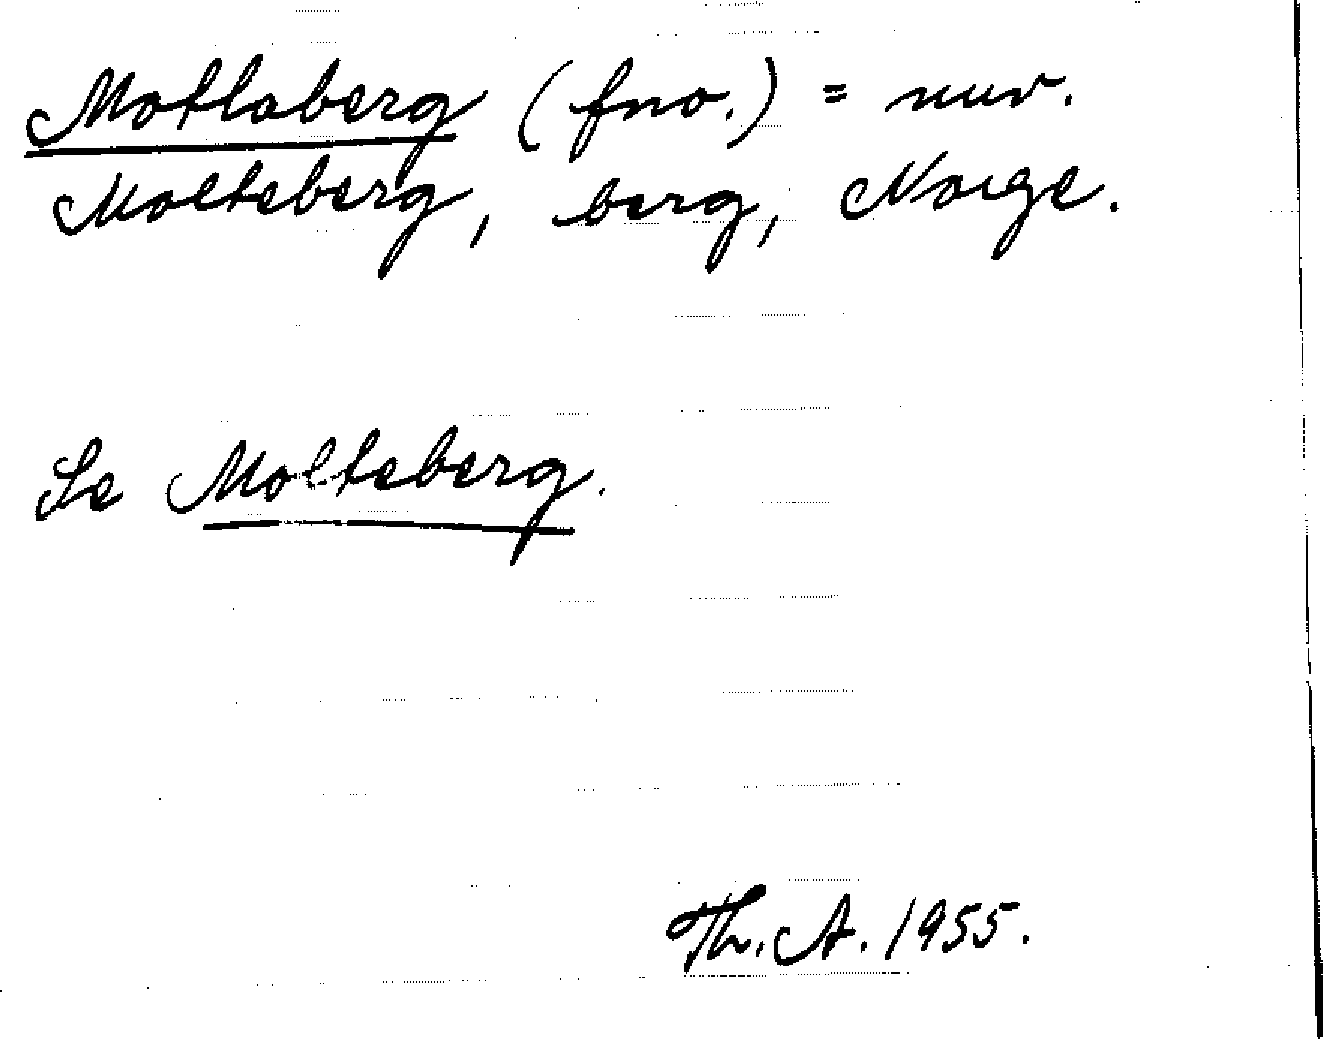 Motlaberg (fno.) = nuv.
Molteberg, berg, Norge.
Se Molteberg.
Th. A. 1955.